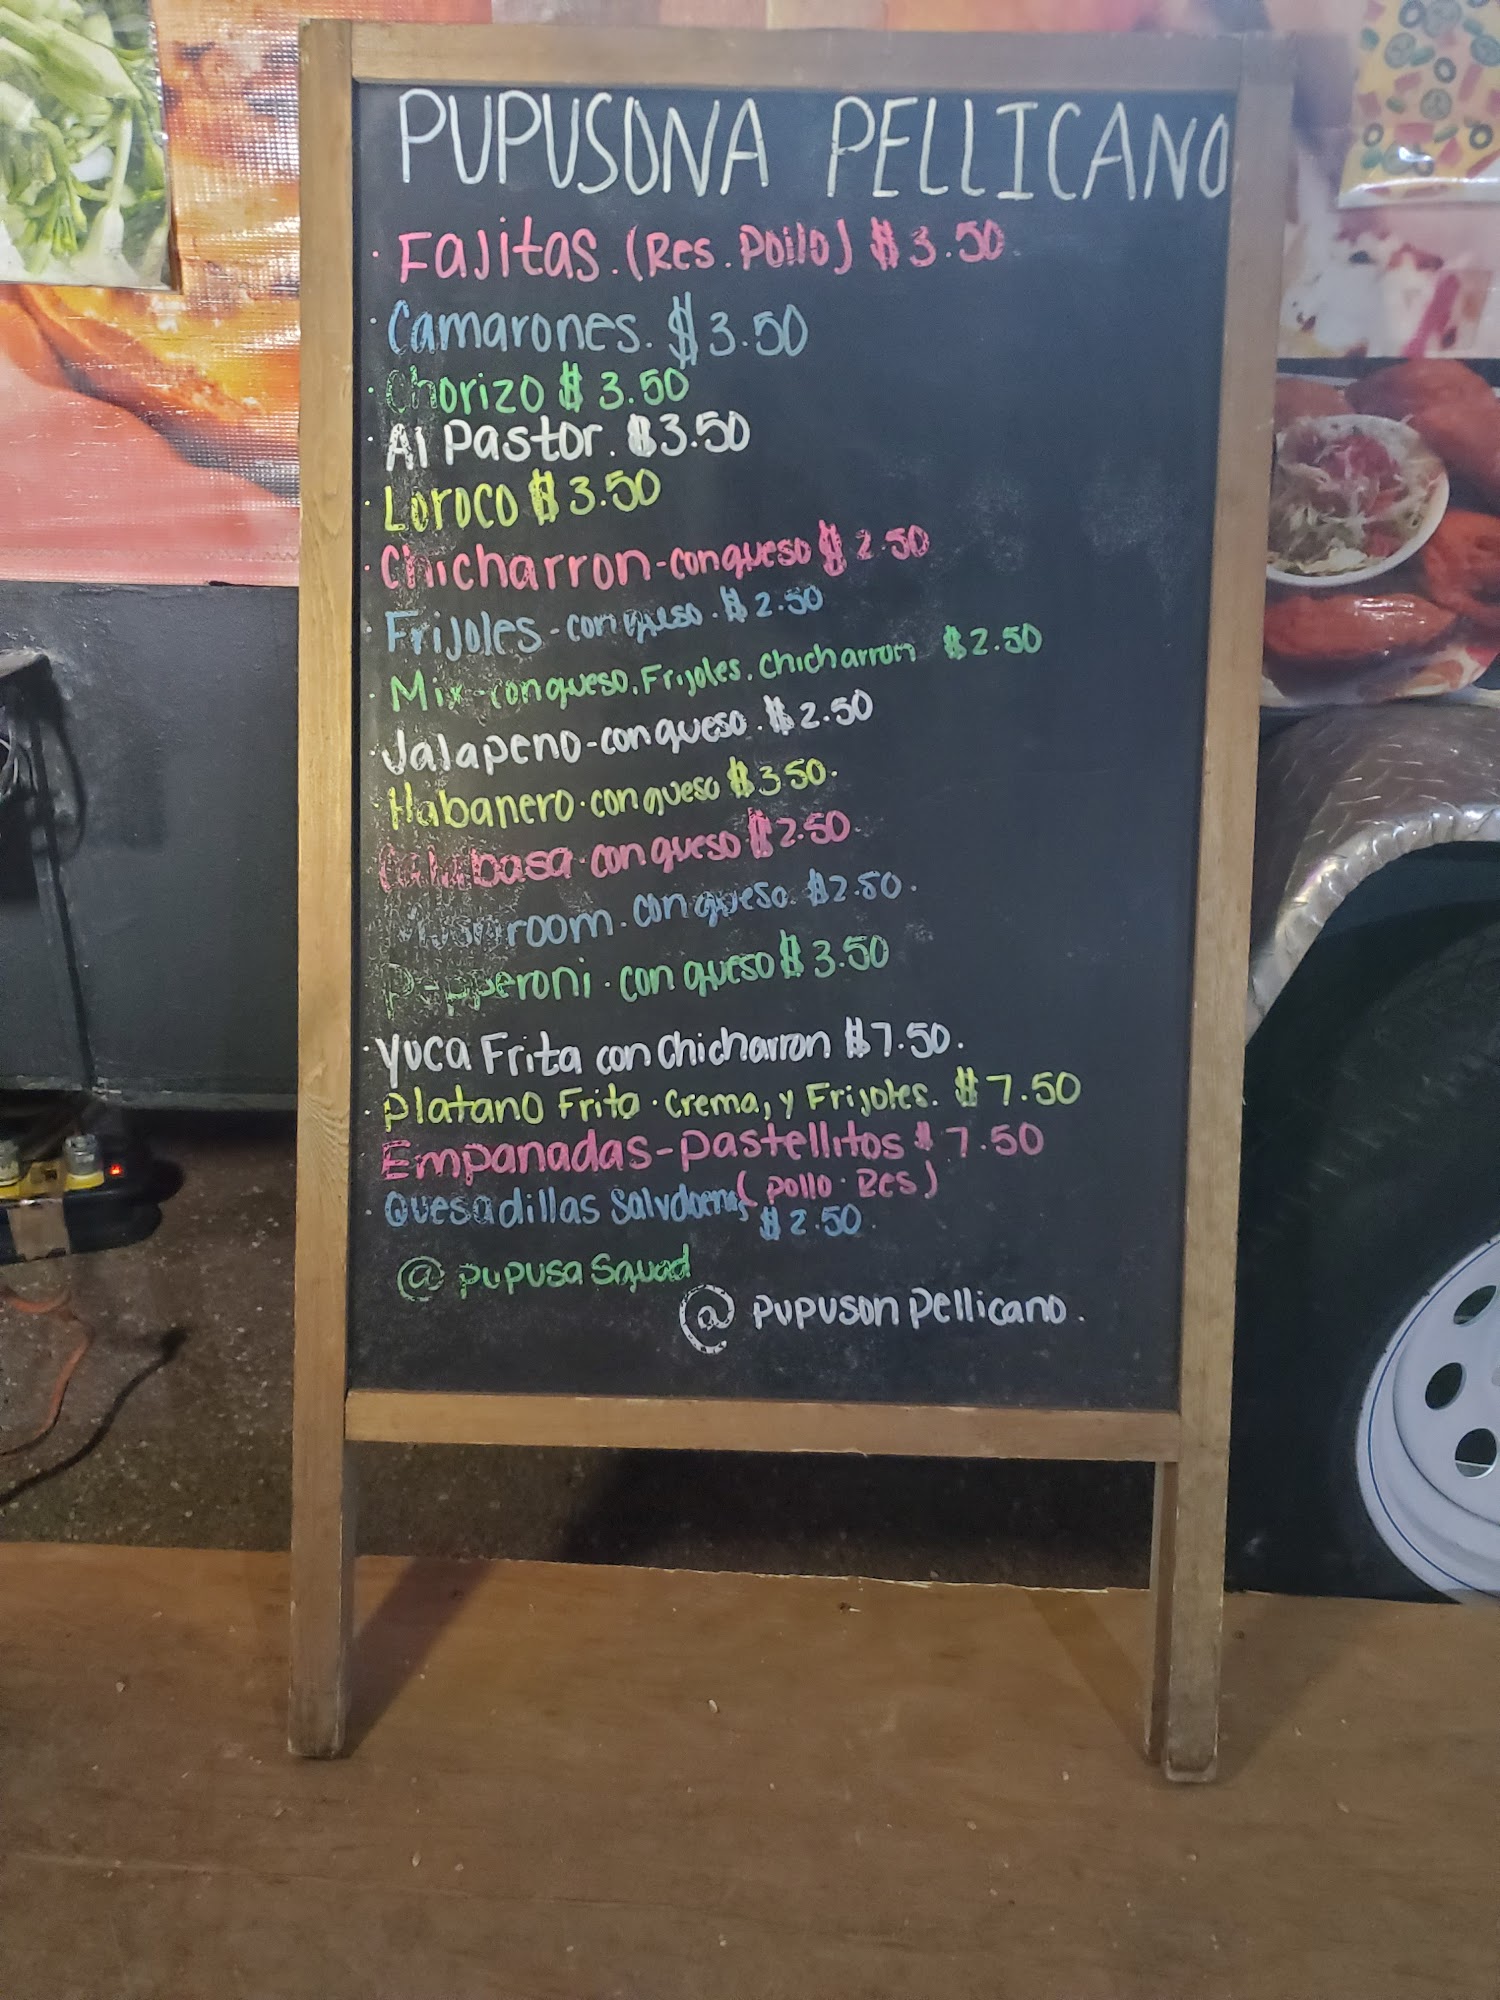 PUPUSONA PELLICANO
· Fajitas. (Res. Pollo) $3.50
· Camarones. $3.50
· Chorizo $3.50
· Al Pastor. $3.50
· Loroco $3.50
· Chicharron-con queso $2.50
· Frijoles-con queso. $2.50
· Mix-con queso. Frijoles. Chicharron $2.50
· Jalapeno-con queso. $2.50
· Habanero·con queso $3.50.
· Calabasa·con queso $2.50.
· Mushroom. con queso. $2.50.
· Pepperoni·con queso $3.50
· Yuca Frita con Chicharron $7.50.
· Platano Frito·Crema, y Frijoles. $7.50
· Empanadas-Pastellitos $7.50
(Pollo·Res)
· Quesadillas
$2.50.
@ pupusa Squad
@ pupuson pellicano.